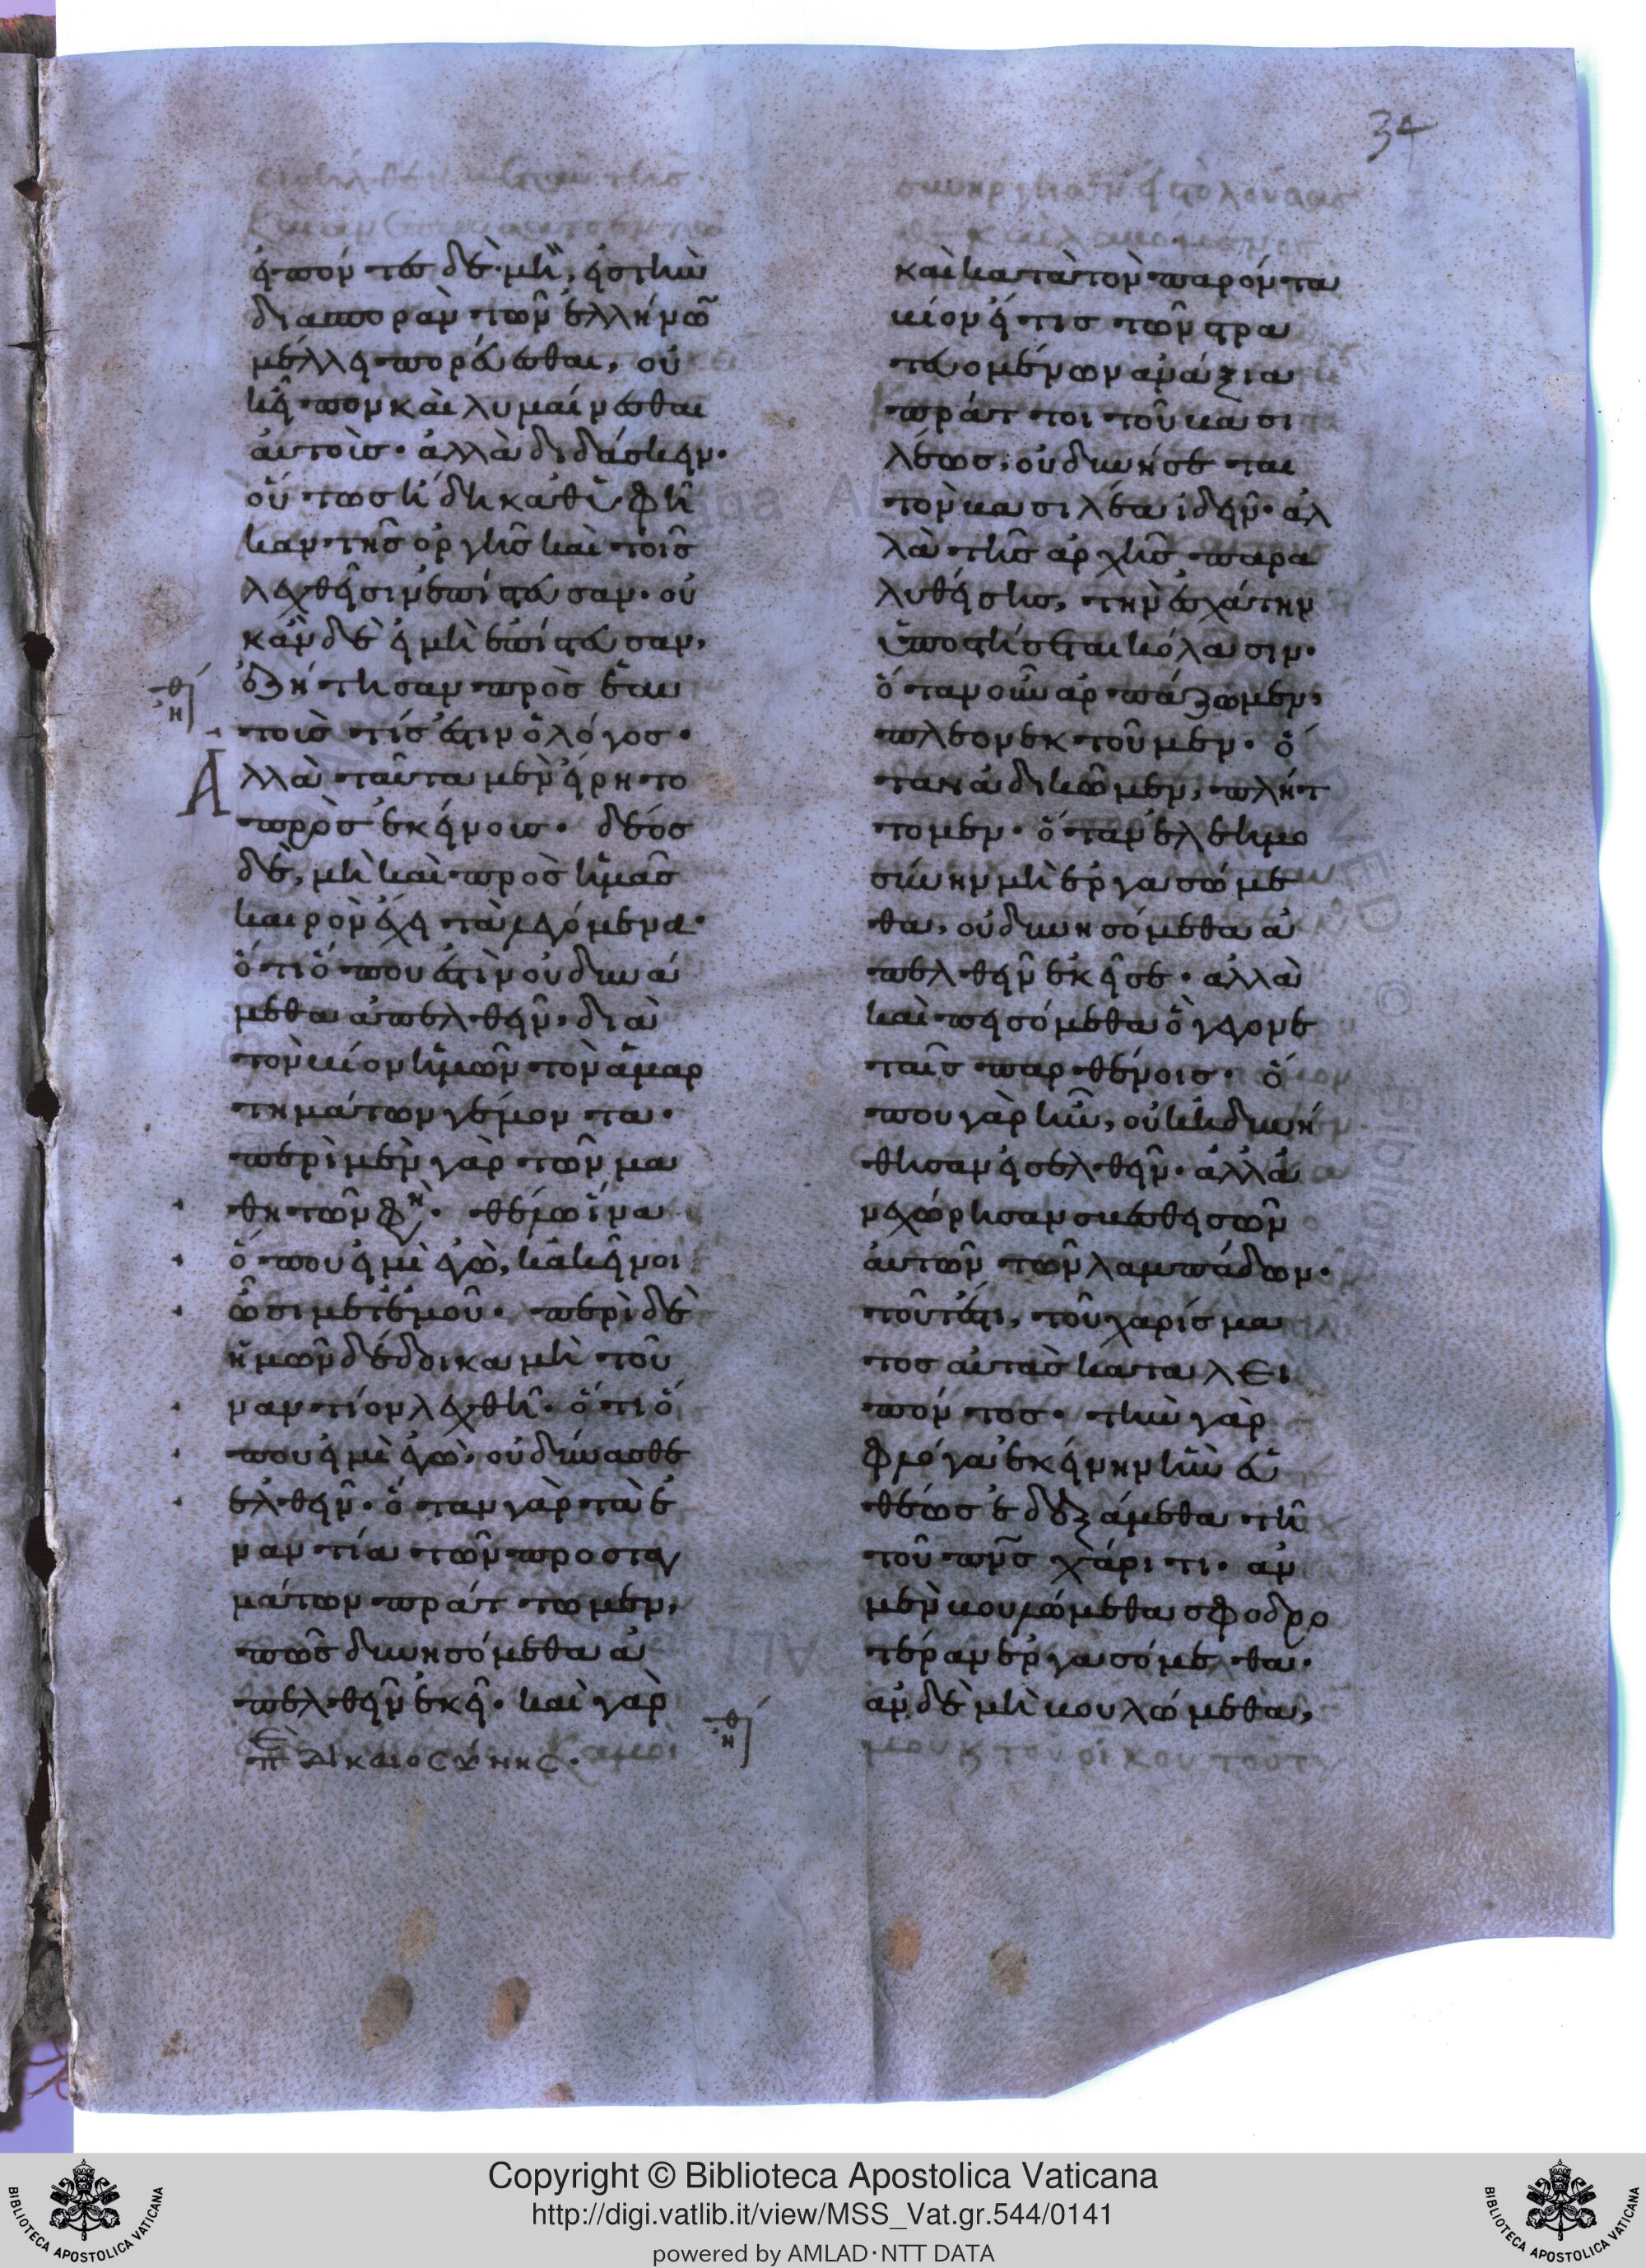 34
εἶπον τὸ δὲ· μὴ εἰς τὴν
διασπορὰν τῶν ἑλλήνω̄
μέλλει πορεύεσθαι, οὐ
κεῖ που καὶ λυμαίνεσθαι
αὐτοῖς· ἀλλὰ διδάσκειν·
οὕτως ἤδη καθυφῆ
καν τῆς ὀργῆς καὶ τοῖς
λεχθεῖσιν ἐπίστευσαν· οὐ
κἂν δὲ εἰ μὴ ἐπίστευσαν,
ἐζήτησαν πρὸς ἑαυ
τοὺς τίς ἐστιν ὁ λόγος·
Ἀλλὰ ταῦτα μὲν εἴρητο
πρὸς ἐκείνους· δέος
δὲ, μὴ καὶ πρὸς ἡμᾶς
καιρὸν ἔχει τὰ λεγόμενα·
ὅτι ὅπου ἐστὶν οὐ δυνά
μεθα ἀπελθεῖν· διὰ
τὸν βίον ἡμῶν τὸν ἁμαρ
τημάτων γέμοντα·
περὶ μὲν γὰρ τῶν μα
θητῶν φη· θέλω ἵνα
ὅπου εἰμὶ ἐγὼ, κἀκεῖνοι
ὦσι μετ' ἐμοῦ· περὶ δὲ
ἡμῶν δέδοικα μὴ τοὐ
ναντίον λεχθῇ· ὅτι ὅ
που εἰμὶ ἐγὼ, οὐ δύνασθε
ἐλθεῖν· ὅταν γὰρ τὰ ἐ
ναντία τῶν προσταγ
μάτων πράττωμεν,
πῶς δυνησόμεθα ἀ
πελθεῖν ἐκεῖ· καὶ γὰρ
ΔΙΚΑΙΟΣΎΝΗΣ·
καὶ κατὰ τὸν παρόντα
βίον εἴ τις τῶν στρα
τευομένων ἀνάξια
πράττοι τοῦ βασι
λέως, οὐ δυνήσεται
τὸν βασιλέα ἰδεῖν· ἀλ
λὰ τῆς ἀρχῆς παρα
λυθεὶς, τὴν ἐσχάτην
ὑποστήσεται κόλασιν·
ὅταν οὖν ἁρπάζωμεν,
πλεονεκτοῦμεν· ὅ
ταν ἀδικῶμεν, πλήτ
τομεν· ὅταν ἐλεημο
σύνην μὴ ἐργασώμε
θα, οὐ δυνησόμεθα ἀ
πελθεῖν ἐκεῖσε· ἀλλὰ
καὶ πεισόμεθα ὃ γέγονε
ταῖς παρθένοις· ὅ
που γὰρ ἦν, οὐκ ἠδυνή
θησαν εἰσελθεῖν· ἀλλ' ἀ
νεχώρησαν σβεσθεισῶν
αὐτῶν τῶν λαμπάδων·
τοῦτ' ἔστι, τοῦ χαρίσμα
τος αὐτὰς καταλει
πόντος· τὴν γὰρ
φλόγα ἐκείνην ἣν εὐ
θέως ἐδεξάμεθα τῇ
τοῦ πνς χάριτι· ἂν
μὲν βουλώμεθα σφοδρο
τέραν ἐργασόμεθα·
ἂν δὲ μὴ βουλώμεθα,
Copyright © Biblioteca Apostolica Vaticana
http://digi.vatlib.it/view/MSS_Vat.gr.544/0141
powered by AMLAD·NTT DATA
BIBLIOTECA APOSTOLICA VATICANA
BIBLIOTECA APOSTOLICA VATICANA